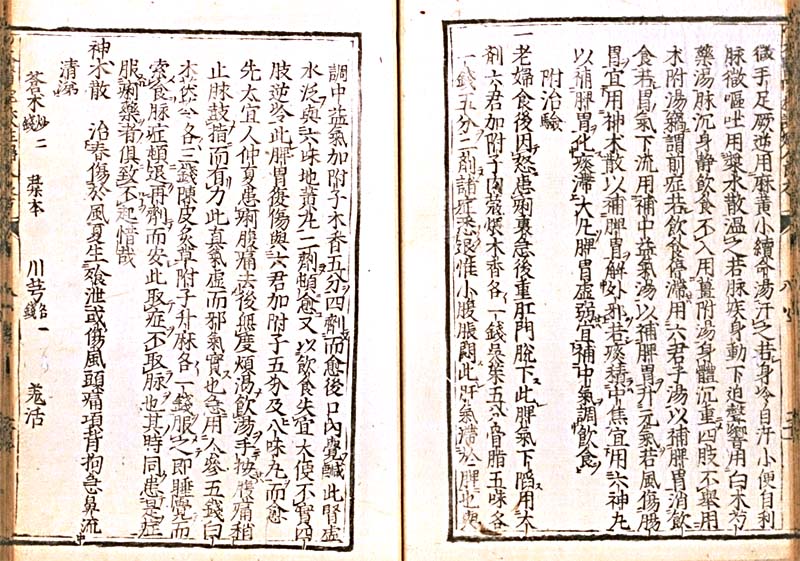 微手足厥逆用麻黃小續命湯汗之若身冷自汗小便自利
脉微嘔吐用漿水散溫之若脉疾身動下迫聲響用白朮芍
藥湯脉沉身靜飲食不入用薑附湯身體沉重四肢不舉用
朮附湯竊謂前症若飲食停滯用六君子湯以補脾胃消飲
食若胃氣下流用補中益氣湯以補脾胃升元氣若風傷腸
胃宜用神朮散以補脾胃解外邪若痰積中焦宜用六神丸
以補脾胃化痰滯大凡脾胃虛弱宜補中氣調飲食
附治驗
一老婦食後因怒患痢裏急後重肛門脫下此脾氣下陷用大
劑六君加附子肉蔲煨木香各一錢吳茱五分骨脂五味各
一錢五分二劑諸症悉退惟小腹脹悶此肝氣滯於脾也與
調中益氣加附子木香五分四劑而愈後口內覺鹹此腎虛
水泛與六味地黃丸二劑頓愈又以飲食失宜大便不實四
肢逆冷此脾胃復傷與六君加附子五分及八味丸而愈
先太宜人仲夏患痢腹痛去後無度煩渴飲湯手按腹痛稍
止脉鼓指而有力此真氣虛而邪氣實也急用人參五錢白
朮茯苓各三錢陳皮炙草附子升麻各一錢服之即睡覺而
索食脉症頓退再劑而安此取症不取脉也其時同患是症
服痢藥者俱致不起惜哉
神朮散 治春傷於風夏生飱泄或傷風頭痛項背拘急鼻流
清涕
蒼朮炒二錢 藁本 川芎各一錢 羌活